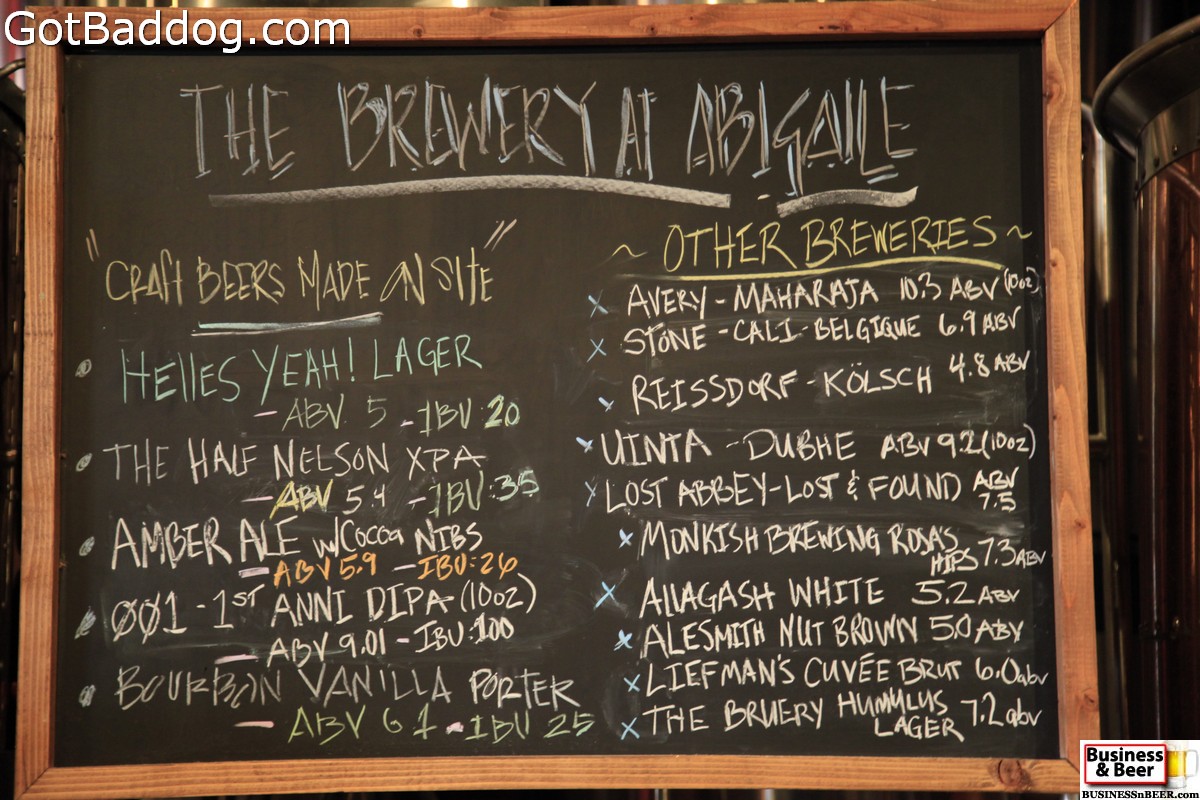 GotBaddog.com
THE BREWERY AT ABIGAILE
"CRAFT BEERS MADE ON SITE"
HELLES YEAH! LAGER
- ABV 5 - IBU 20
THE HALF NELSON XPA
- ABV 5.4 - IBU:35
AMBER ALE w/Cocoa NIBS
- ABV 5.9 - IBU:26
001 - 1ST ANNI DIPA (10oz)
- ABV 9.01 - IBU:100
BOURBON VANILLA PORTER
- ABV 6.1 - IBU 25
~ OTHER BREWERIES ~
x AVERY - MAHARAJA 10.3 ABV (10oz)
x STONE - CALI - BELGIQUE 6.9 ABV
x REISSDORF - KÖLSCH 4.8 ABV
x UINTA - DUBHE ABV 9.2 (10oz)
x LOST ABBEY - LOST & FOUND ABV 7.5
x MONKISH BREWING ROSA'S
HIPS 7.3 ABV
x ALLAGASH WHITE 5.2 ABV
x ALESMITH NUT BROWN 5.0 ABV
x LIEFMAN'S CUVÉE BRUT 6.0 abv
x THE BRUERY HUMULUS
LAGER 7.2 abv
Business
& Beer
BUSINESSnBEER.com